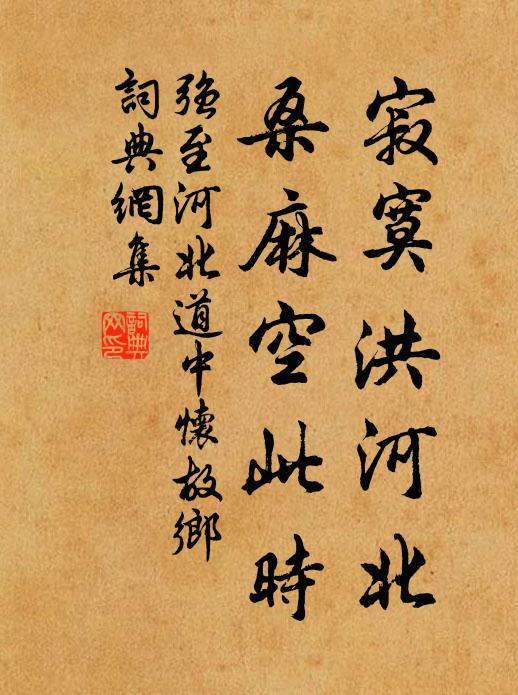 寂寞洪河北
桑麻空此時
強至河北道中懷故鄉
詞典網集
詞典網印